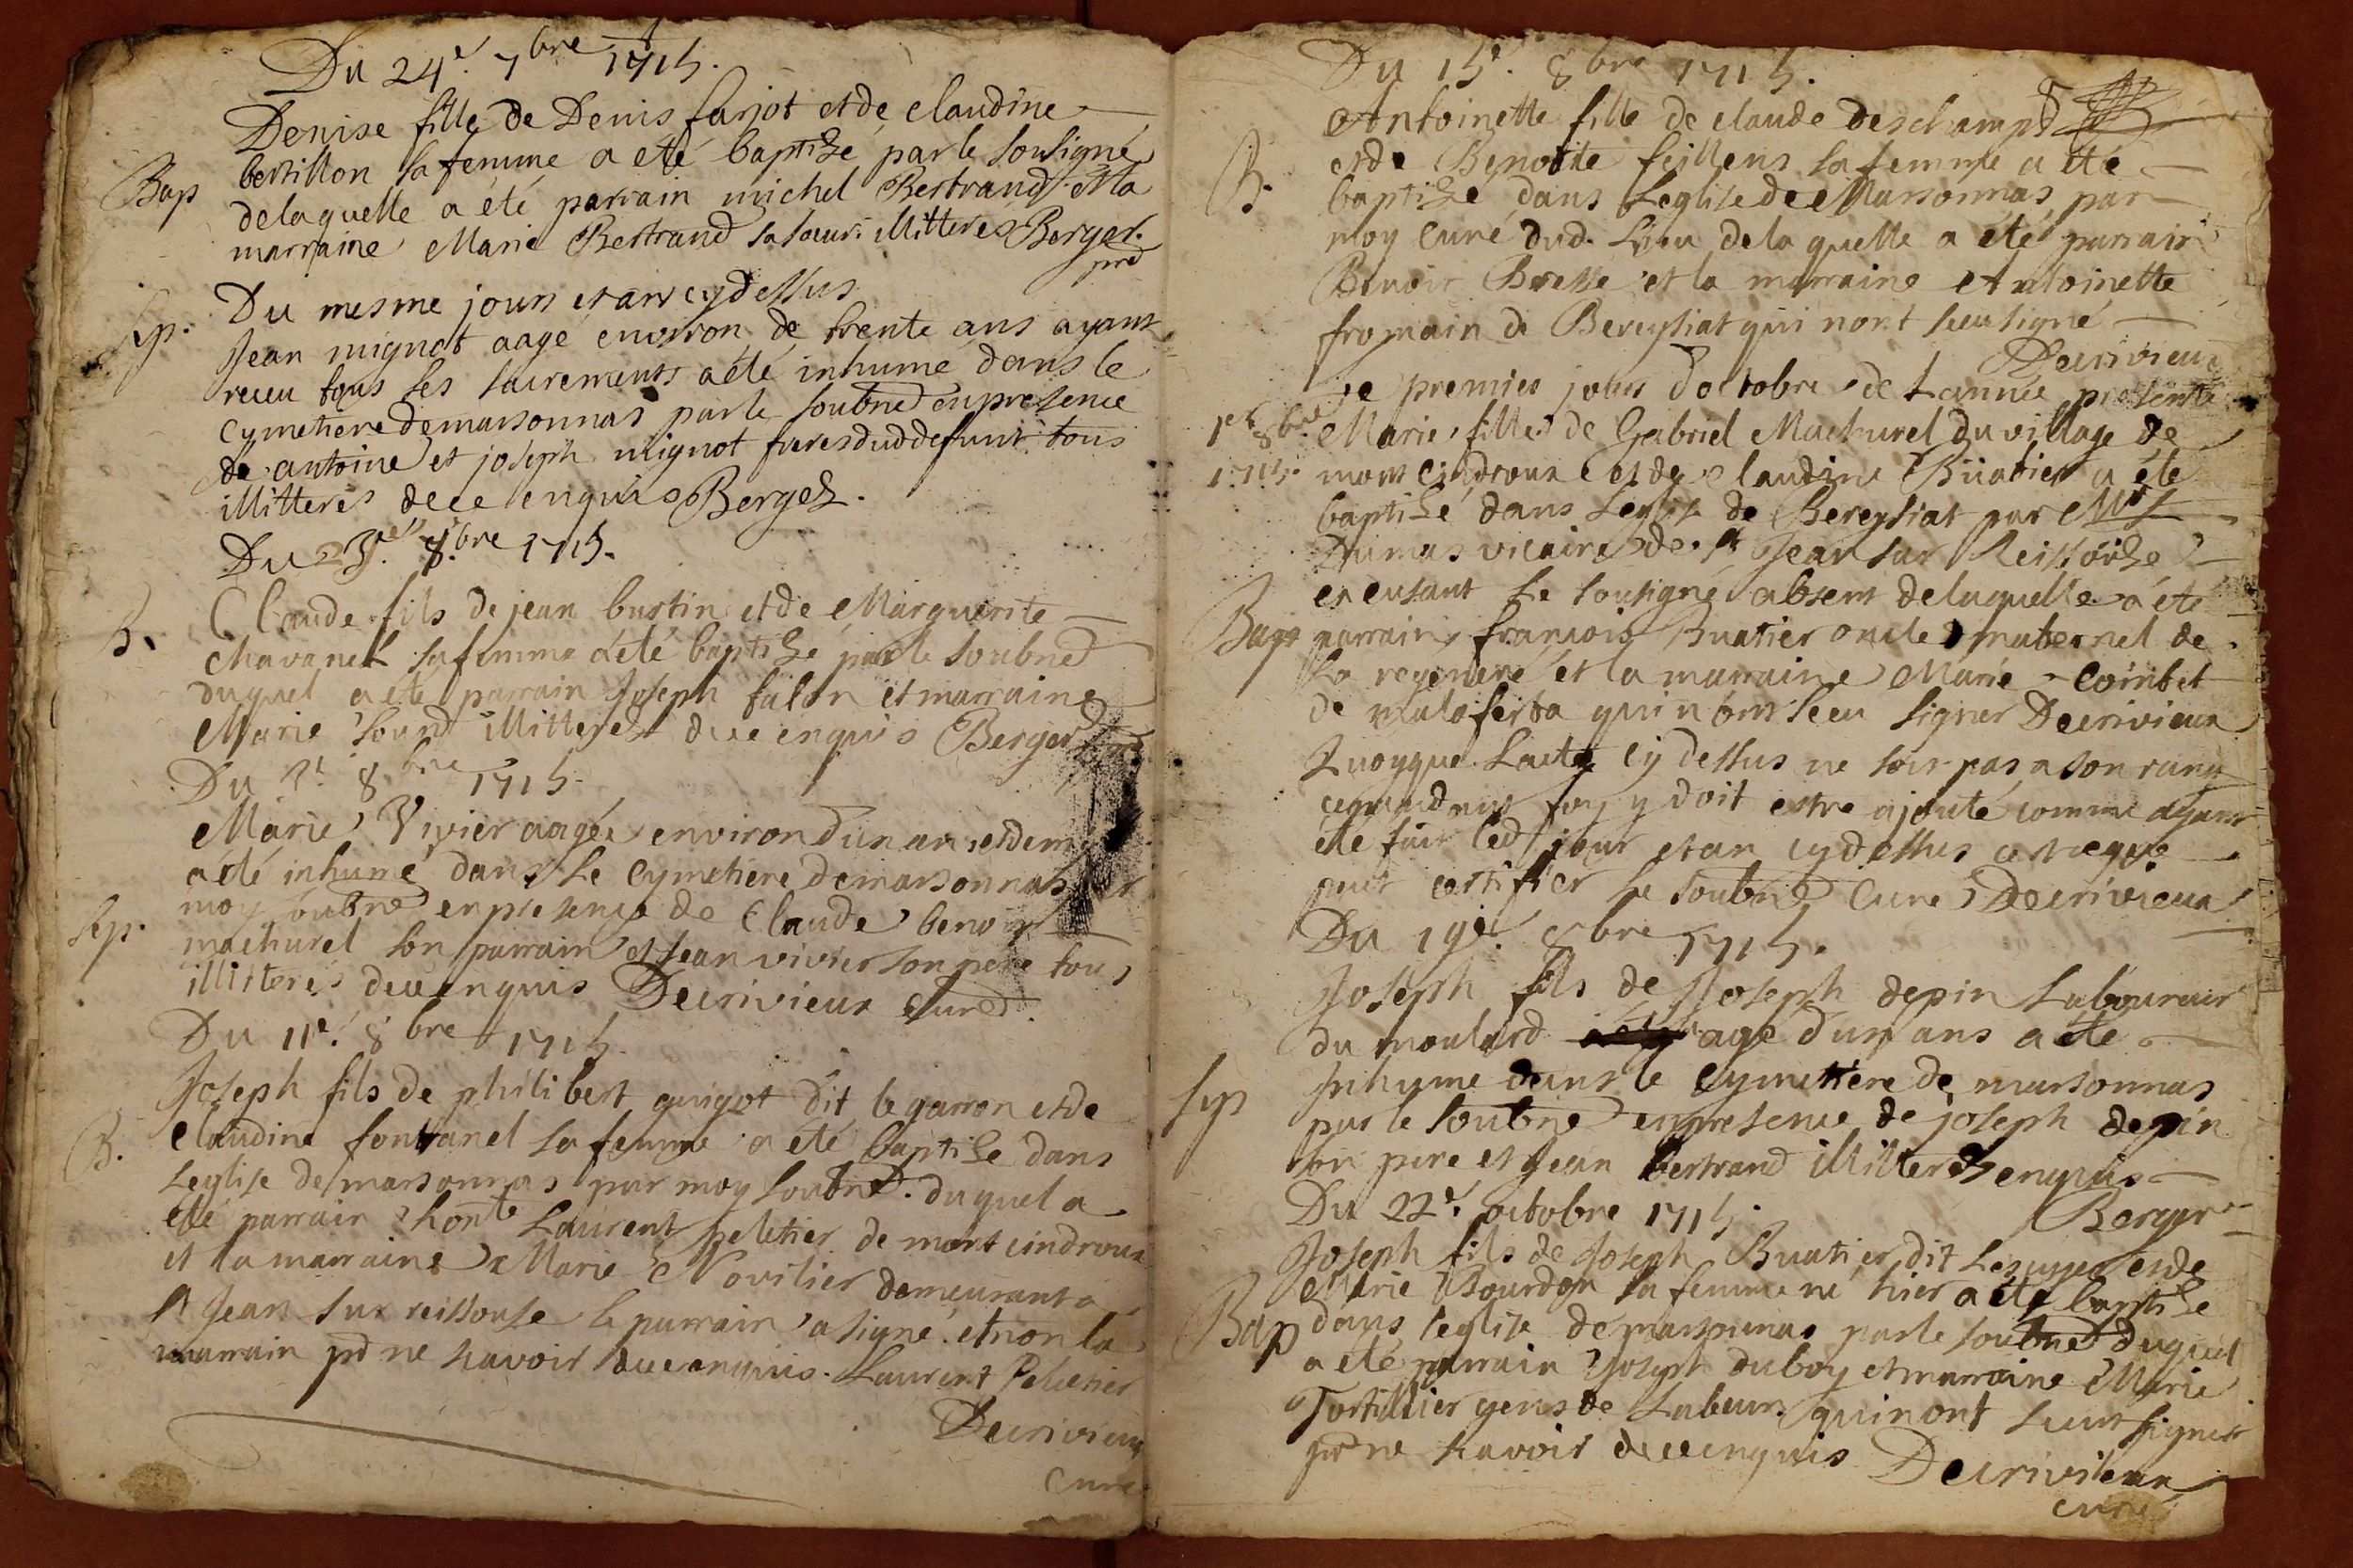 Du 24e. 7bre 1715.
Denise fille de Denis farjot et de Claudine
Bap
bertillon sa femme a eté baptizé par le sousigné
de laquelle a été parrain michel Bertrand et la
marraine Marie Bertrand sa soeur illitteres Berger
prd
Sep.
Du mesme jours et an cy dessus
Jean mignot aagé environ de trente ans ayant
receu tous ses sacrements a été inhume dans le
cymetiere de marsonnas par le soubne en presence
de antoine et joseph mignot freres dud defunt tous
illitterés de ce enquis Berger.
Du 3e. 8bre 1715.
B.
Claude fils de jean bustin et de Marguerite
Chavanel sa femme a été baptizé par le soubne
duquel a ete parrain Joseph falon et marraine
Marie illitteres de ce enquis Berger
Du 8bre 1715.
Marie Vivier aagée environ d'un an et dem
a été inhumé dans le Cymetiere de marsonnas
Sep.
moy soubne en presence de Claude benoit
machurel son parrain et Jean vivier son pere tous
illitterés de ce enquis Decrivieux Curé.
Du 11e. 8bre 1715
Joseph fils de philibert guigot dit le garron et de
B.
Claudine fontanel sa femme a été baptizé dans
l'eglise de marsonnas par moy soubne. duquel a
été parrain honte Laurent peletier de mont cindroux
et la marraine Marie Novilier demeurant a
st Jean sur reissouse le parrain a signé et non la
marrain pr ne scavoir de ce enquis. Laurent Peletier
Decrivieux
Curé
Du 15e. 8bre 1715.
Antoinette fille de claude deschamps
B.
et de Benoitte feillens sa femme a été
baptizé dans l'eglise de Marsonnas par
moy Curé dud. lieu de la quelle a été parrain
Benoit Bresse et la marraine Antoinette
fromain de Bereysiat qui nont sceu signé
Decrivieux
Le premier jour d'octobre de l'année presente
1er 8bre
1715.
Marie fille de Gabriel Machurel du village de
mont cindroux et de claudine Buatier a été
baptizé dans l'eglise de Bereysiat par Mre
Dumas vicaire de st Jean sur Reissouze
excusant le sousigné absent de laquelle a été
Bap
parrain francois Buatier oncle maternel de
la regeneré et la marraine Marie Cointet
de malaferta qui n'ont sceu signer Decrivieux
Quoyque l'acte cy dessus ne soit pas a son rang
cependant foy y doit estre ajouté comme ayant
été fait led jour et an cy dessus ce que
peut certifier le soubne Curé Decrivieux
Du 19e. 8bre 1715.
Joseph fils de Joseph depin Laboureur
du moulard agé d'un ans a été
Sep
Inhume dans le Cymettiere de marsonnas
par le soubne en presence de joseph depin
son pere et Jean bertrand illitterés enquis
Berger
Du 22e. octobre 1715.
Joseph fils de Joseph Buatier dit et de
Marie Bourdon sa femme né hier a été baptizé
Bap
dans l'eglise de marsonnas par le soubne duquel
a été parrain Joseph duboy et marraine Marie
Tortillier gens de Labeur qui nont sceut signer
pr ne scavoir de ce enquis Decrivieux
curé